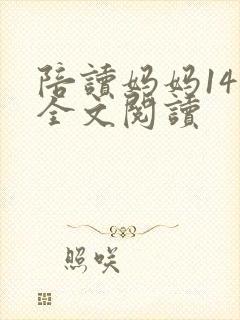 陪讀妈妈14
全文閱讀
照咲